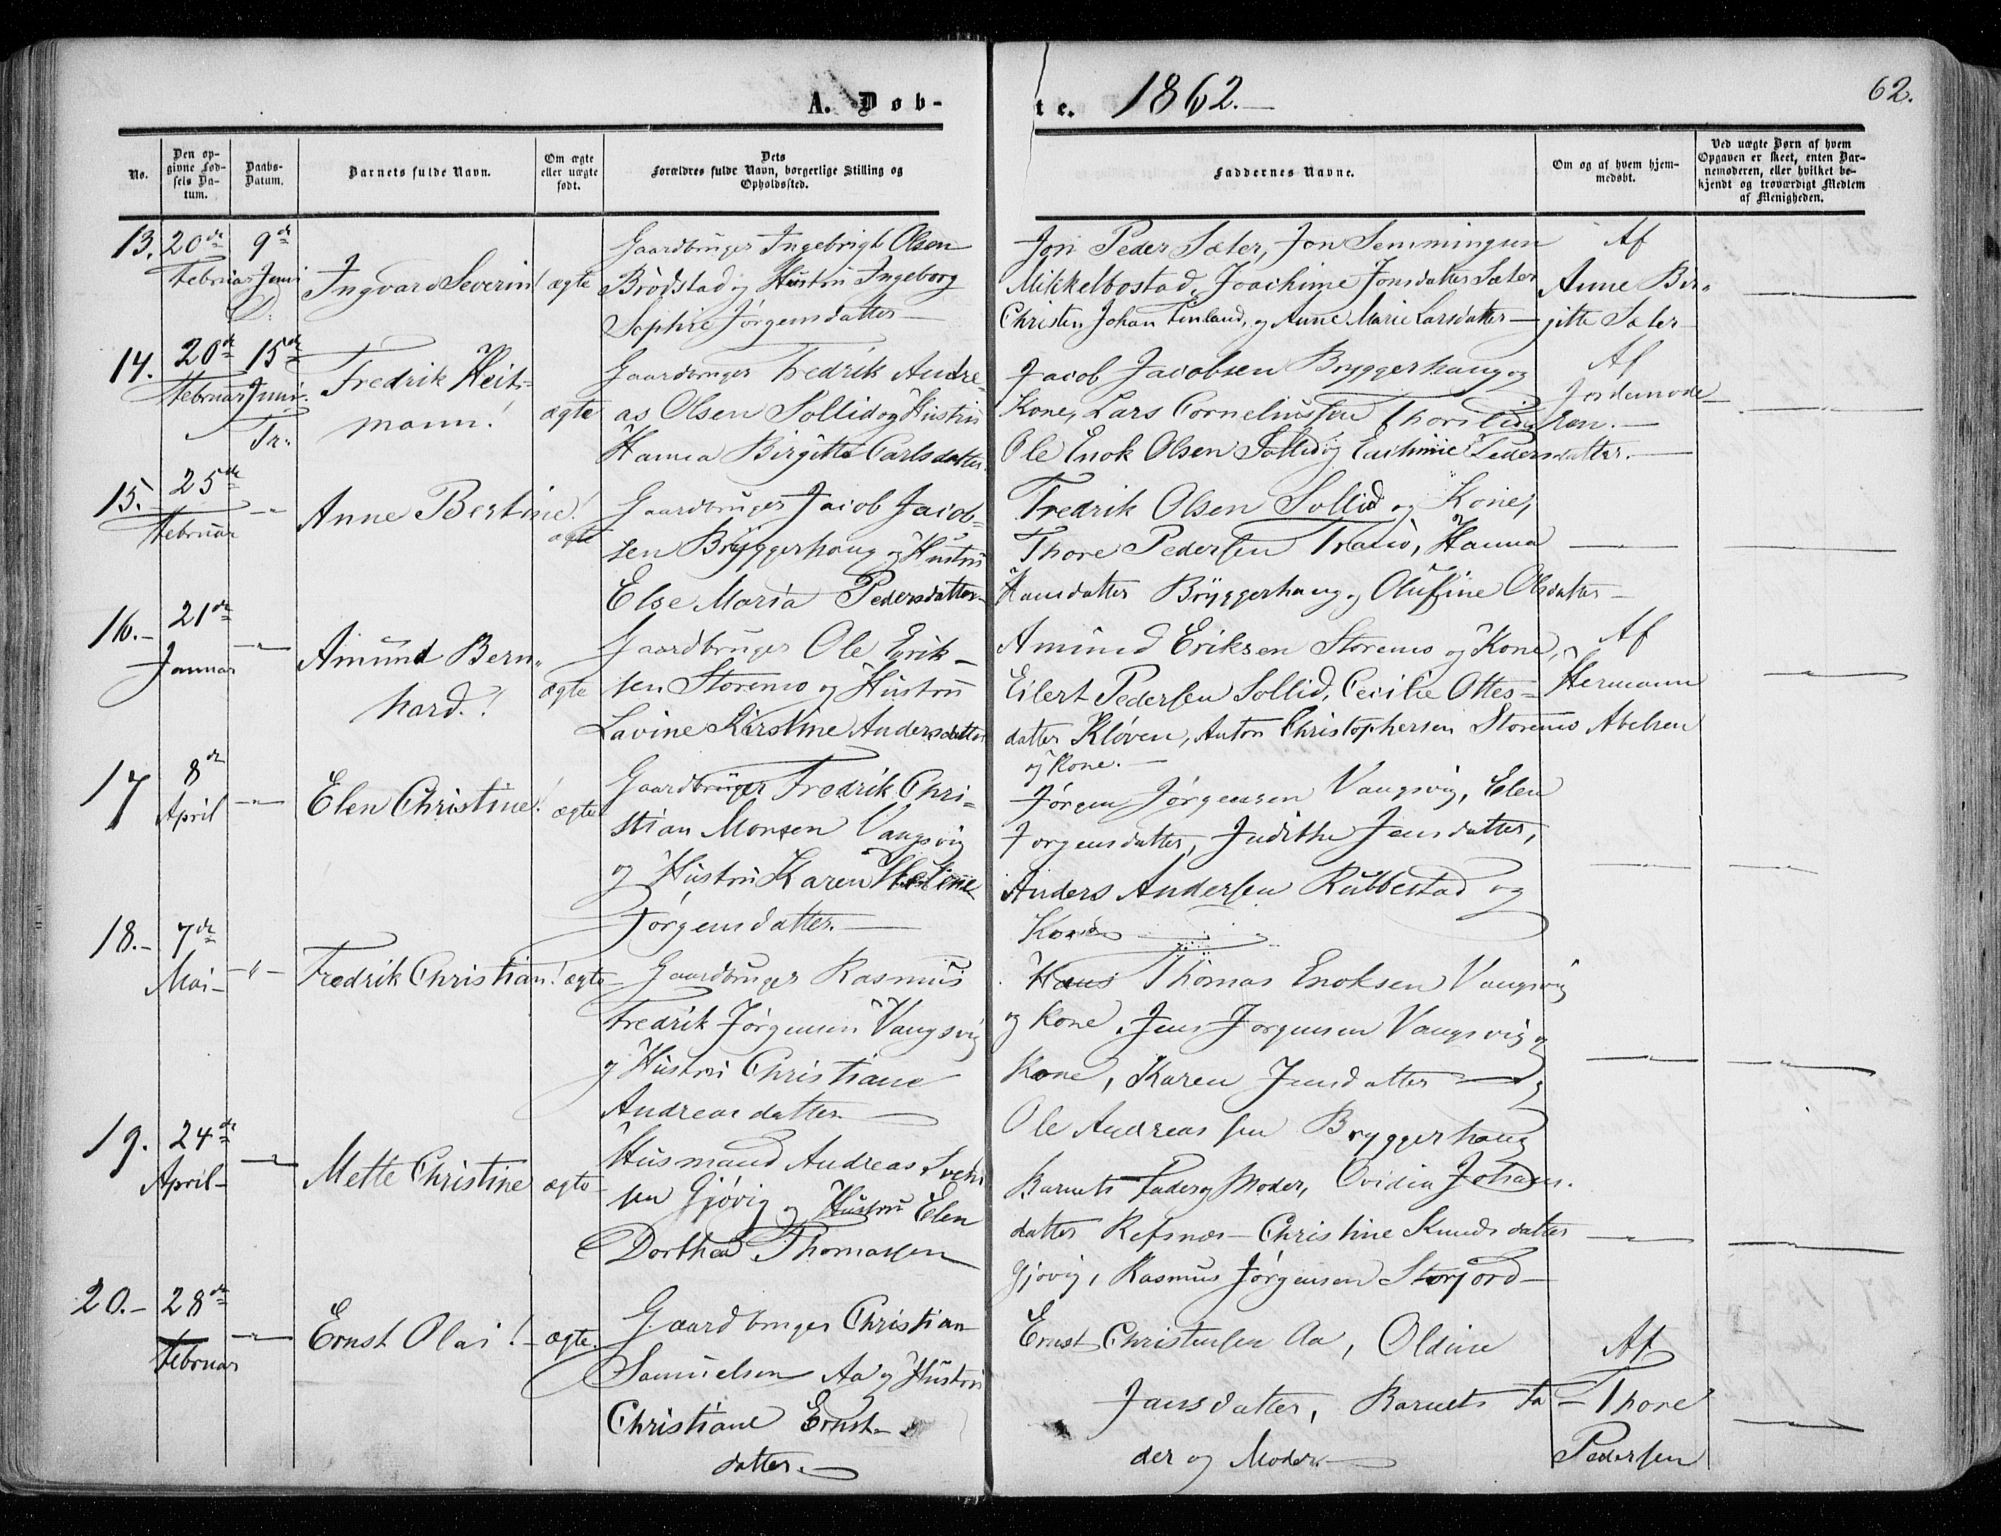 A. Døb-
te. 1862.
62.
No.
Den op-
givne Fød-
sels Da-
tum.
Daabs-
Datum.
Barnets fulde Navn.
Om ægte
eller uægte
født.
Dets
Forældres fulde Navn, borgerlige Stilling og
Opholdssted.
Faddernes Navne.
Om og af hvem hjem-
medøbt.
Ved uægte Børn af hvem
Opgaven er skeet, enten Bar-
nemoderen, eller hvilket be-
kjendt og troværdigt Medlem
af Menigheden.
13. 20de Februar
9de Juni
Ingvard Severin!
ægte
Gaardbruger Ingebrigt Olsen
Brødstad og Hustru Ingeborg
Sophie Jørgensdatter
Jon Peder Sæter, Jon Semmingsen
Mikkelbostad, Joachime Jonsdatter Sæter
Christen Johan Finland, og Anne Marie Larsdatter
Af
Anne Bir-
gitte Sæter
14. 20de Februar
15de Juni
Tr.
Fredrik Heit-
mann!
ægte
Gaardbruger Fredrik Andre-
as Olsen Sollid og Hustru
Hanna Birgitte Carlsdatter
Jacob Jacobsen Bryggerhaug og
Kone, Lars Cornelius
Ole Enok Olsen Sollid og Pedersdatter.
Af
Jordemode-
ren.
15. 25de Februar
"
Anne Bertine!
ægte
Gaardbruger Jacob Jacob-
sen Bryggerhaug og Hustru
Else Maria Pedersdatter
Fredrik Olsen Sollid og Kone,
Thore Pedersen Tranø, Hanna
Hansdatter Bryggerhaug og Olufine Olsdatter
16. 21de Januar
"
Amund Bern-
hard.!
ægte
Gaardbruger Ole Erik-
sen Storemo og Hustru
Lavine Kirstine Andersdatter
Amund Eriksen Storemo og Kone,
Eilert Pedersen Sollid, Cecilie Ottes-
datter Kløven, Anton Christophersen Storemo
og Kone.
Af
Hermann
Abelsen
17 8de April
"
Elen Christine!
ægte
Gaardbruger Fredrik Chri-
stian Monsen Vangsvig
og Hustru Karen
Jørgensdatter.
Jørgen Jørgensen Vangsvig, Elen
Jørgensdatter, Judithe Jensdatter,
Anders Andersen Rubbestad og
Kone
18. 7de Mai
"
Fredrik Christian!
ægte
Gaardbruger Rasmus
Fredrik Jørgensen Vangsvig
og Hustru Christiane
Andreasdatter
Hans Thomas Enoksen Vangsvig
og Kone, Jens Jørgensen Vangsvig og
Kone, Karen Jensdatter og
Ole Andreassen Bryggerhaug
19. 24de April
"
Mette Christine
ægte
Husmand Andreas Svend-
sen Gjøvig og Hustru Elen
Dorthea Thomassen
Barnets Fader og Moder, Ovidia Johans-
datter Refsnæs - Christine Knudsdatter
Gjøvig, Rasmus Jørgensen Storjord
20. 28de Februar
"
Ernst Olai!
ægte
Gaardbruger Christian
Samuelsen Aa og Hustru
Christiane Ernst-
datter.
Ernst Christensen Aa, Oldine
Jansdatter, Barnets Fa-
der og Moder.
Af
Thore
Pedersen